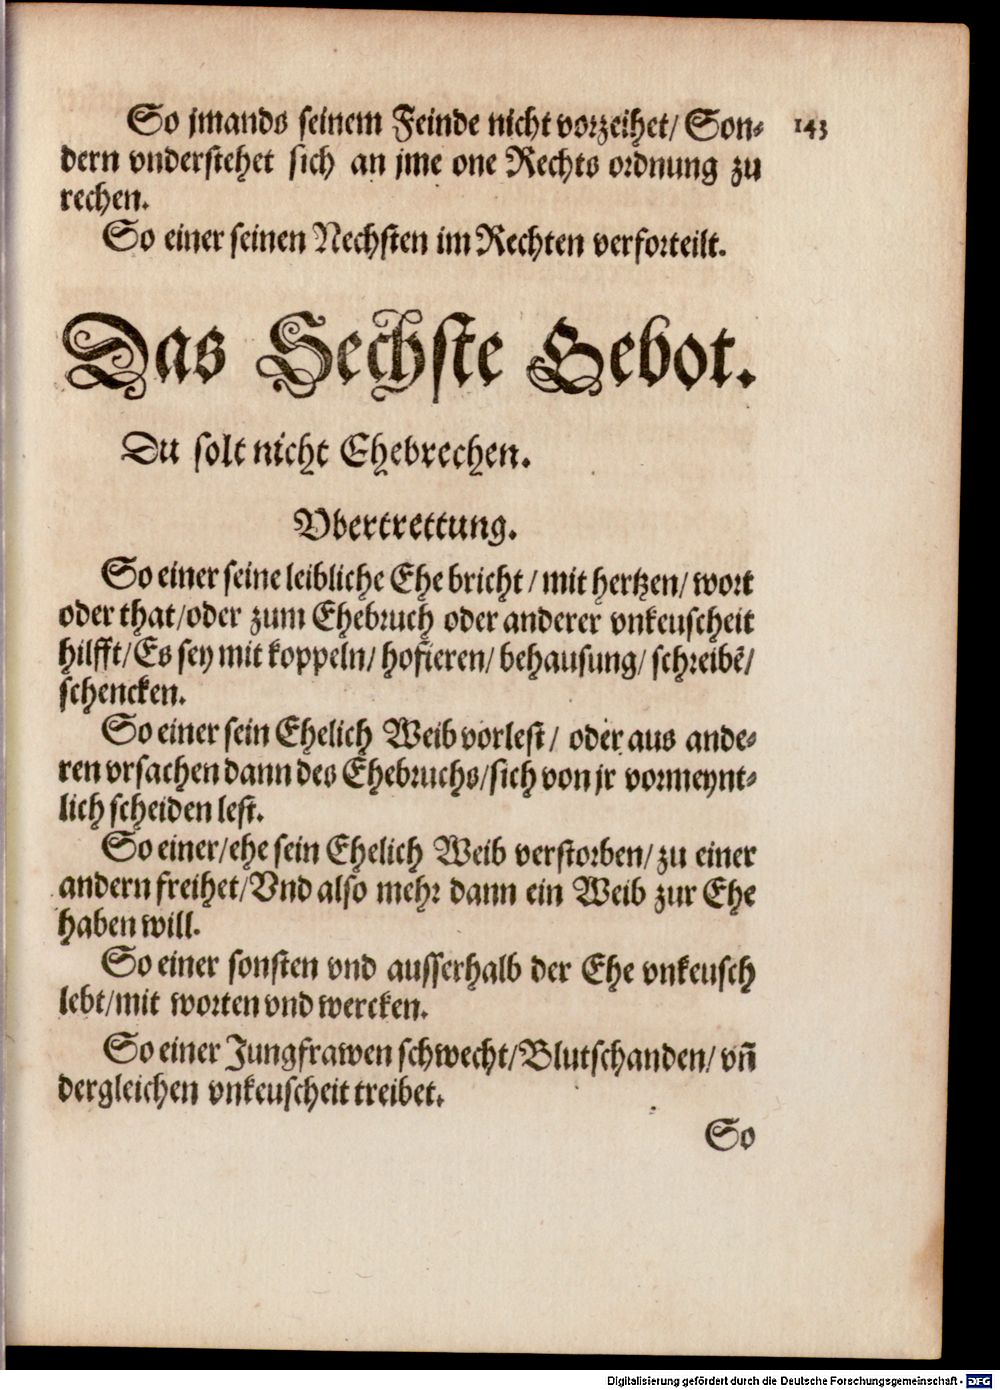 So jmands seinem Feinde nicht vorzeihet/ Son- 143
dern vnderstehet sich an jme one Rechts ordnung zu
rechen.
So einer seinen Nechsten im Rechten verforteilt.
Das Sechste Gebot.
Du solt nicht Ehebrechen.
Vbertrettung.
So einer seine leibliche Ehe bricht / mit hertzen/ wort
oder that/oder zum Ehebruch oder anderer vnkeuscheit
hilfft/ Es sey mit koppeln/ hofieren/ behausung/ schreibē/
schencken.
So einer sein Ehelich Weib vorlest/ oder aus ande-
ren vrsachen dann des Ehebruchs/sich von jr vormeynt-
lich scheiden lest.
So einer/ehe sein Ehelich Weib verstorben/ zu einer
andern freihet/Vnd also mehr dann ein Weib zur Ehe
haben will.
So einer sonsten vnd ausserhalb der Ehe vnkeusch
lebt/mit worten vnd wercken.
So einer Jungfrawen schwecht/Blutschanden/ vñ
dergleichen vnkeuscheit treibet.
So
Digitalisierung gefördert durch die Deutsche Forschungsgemeinschaft - DFG